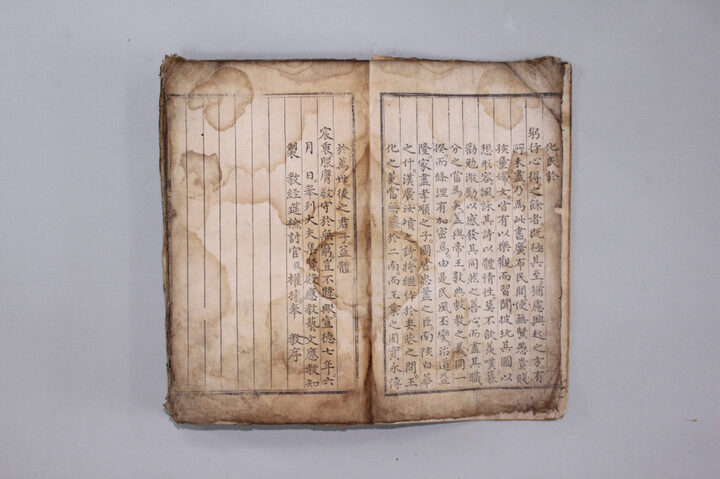 化民於
躬行心得之餘者既極其至猶慮興起之方。有
所未盡乃為此書廣布民間使無賢愚貴賤
孩童婦女皆有以樂觀而習聞披玩其圖以
想形容諷詠其詩以體情性莫不歆羨嘆慕
勸勉激勵以感發其同然之善心而盡其職
分之當為矣蓋與帝王敦典敷教之義同一
揆而條理有加密焉由是民風丕變治道益
隆。家盡孝順之子國皆忠藎之臣南陔白華
之什。漢廣汝墳之詩將繼作於委巷之間王
化之美當無讓於二南而王業之固實永傳
於萬世。後之君子益體
宸衷服膺敬守於無斁豈不韙歟宣德七年六
月 日。奉列大夫集賢殿應教藝文應教知
製 教經筵檢討官臣權採奉 教序